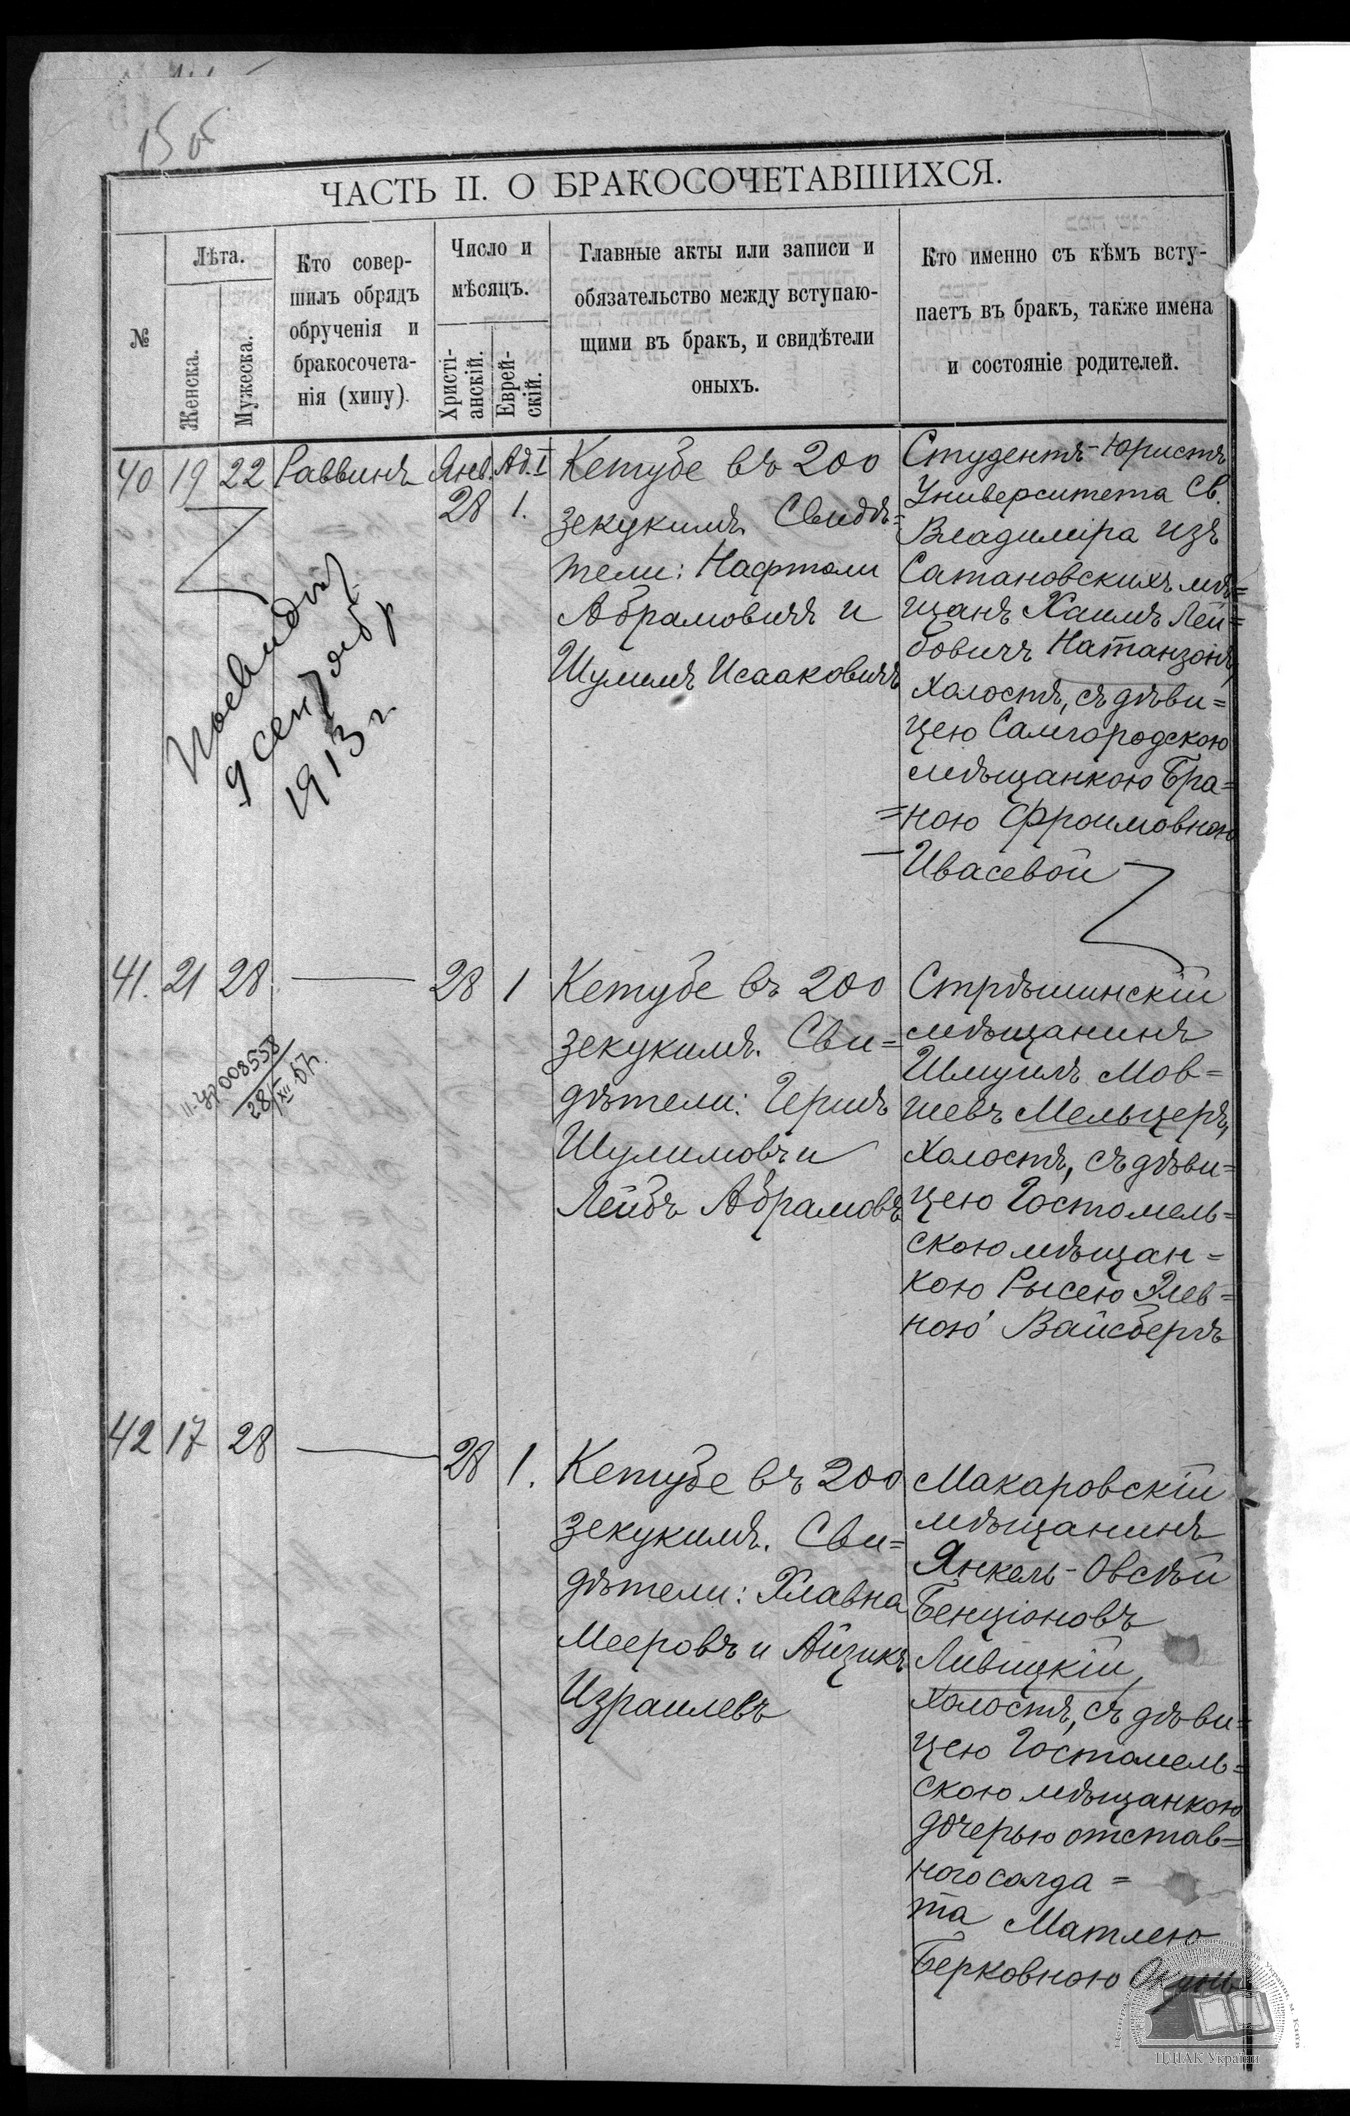 15 об
ЧАСТЬ II. О БРАКОСОЧЕТАВШИХСЯ.
№
Лѣта.
Женска.
Мужеска.
Кто совер-
шилъ обрядъ
обрученія и
бракосочета-
нія (хипу)
Число и
мѣсяцъ.
Христі-
анскій.
Еврей-
скій.
Главные акты или записи и
обязательство между вступаю-
щими въ бракъ, и свидѣтели
оныхъ.
Кто именно съ кѣмъ всту-
паетъ въ бракъ, также имена
и состояніе родителей.
40 19 22 Раввинъ Янв. 28 Ад. I 1.
Кетубе въ 200
зекукимъ. Свидѣ=
тели: Нафтоли
Абрамовичъ и
Шулимъ Исааковичъ
Студентъ-Юристъ
Университета Св.
Владиміра изъ
Сатановскихъ мѣ=
щанъ Хаимъ Лей=
бовичъ Натанзонъ,
холостъ, съ дѣви=
цею Самгородскою
мѣщанкою Бра=
=ною Фроимовною
Ивасевой
9 сентябр
1913 г.
41. 21 28 28 1
Кетубе въ 200
зекукимъ. Сви=
дѣтели: Гершъ
Шулимовъ и
Лейбъ Абрамовъ
Стрѣшинскій
мѣщанинъ
Шмуилъ Мов=
шевъ Мельцеръ,
холостъ, съ дѣви=
цею Гостомель=
скою мѣщан=
кою Рысею Элев=
ною Вайсбергъ
008558
28/XII 57г.
42 17 28 28 1.
Кетубе въ 200
зекукимъ. Сви=
дѣтели: Хлавна
Мееровъ и Айзикъ
Израилевъ
Макаровскій
мѣщанинъ
Янкель-Овсѣй
Бенціоновъ
Ливицкій,
холостъ, съ дѣви=
цею Гостомель=
скою мѣщанкою
дочерью отстав=
ного солда=
та Матлею
Берковною Окунь
ЦДІАК України